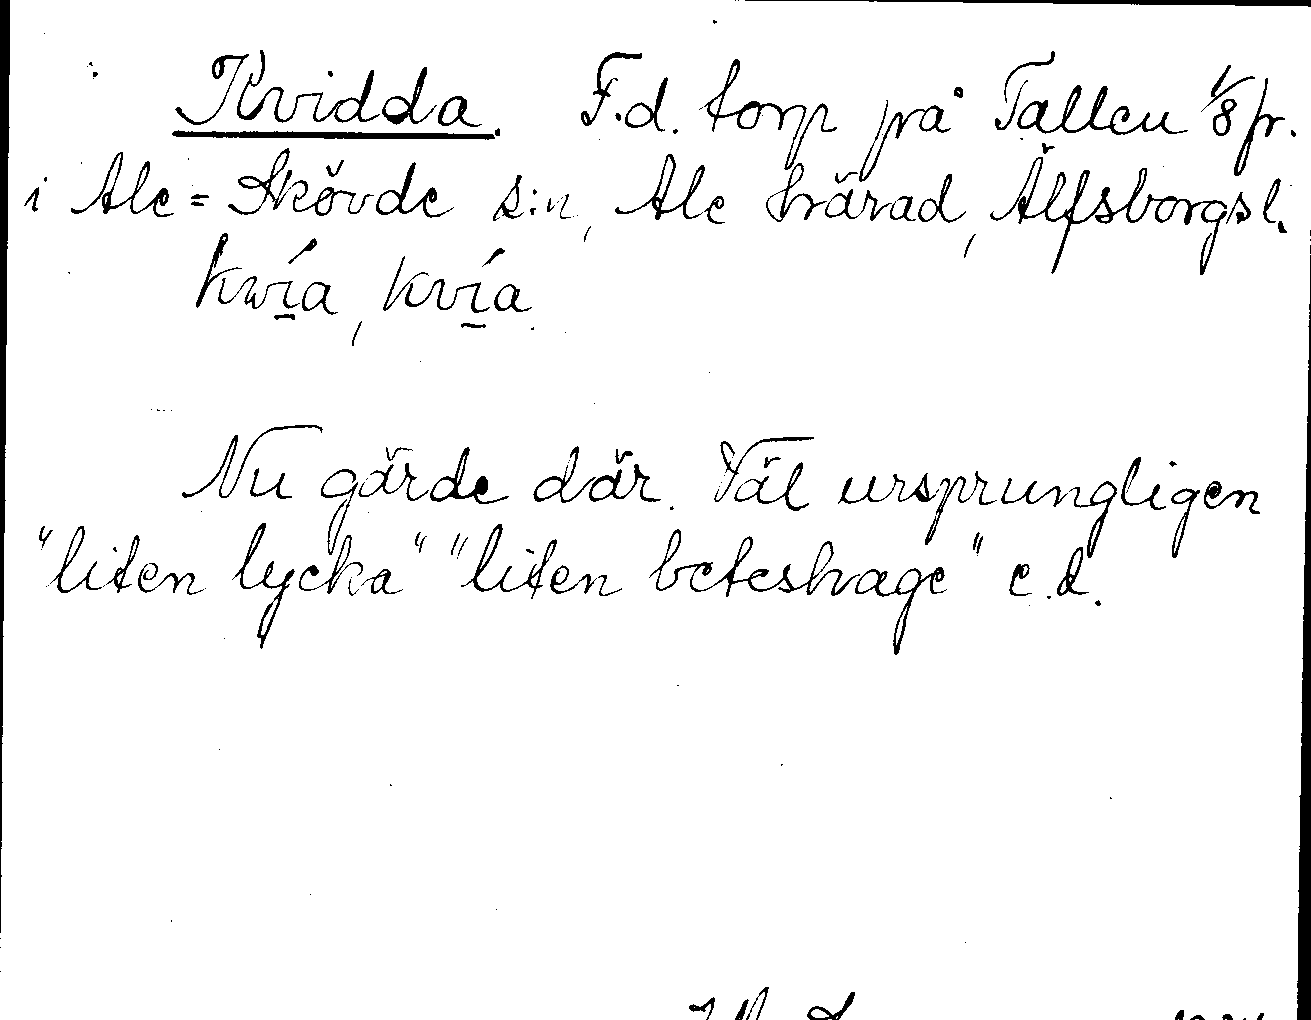 Kvidda. F.d. torp på Tallen 1/8 fr.
i Ale=Skövde s:n, Ale härad, Älfsborgsl.
kwí̱a, kví̱a.
Nu gärde där. Väl ursprungligen
"liten lycka" "liten beteshage" e.d.